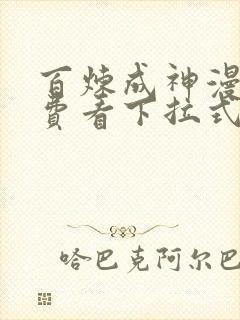 百炼成神漫
费看下拉式
哈巴克阿尔巴